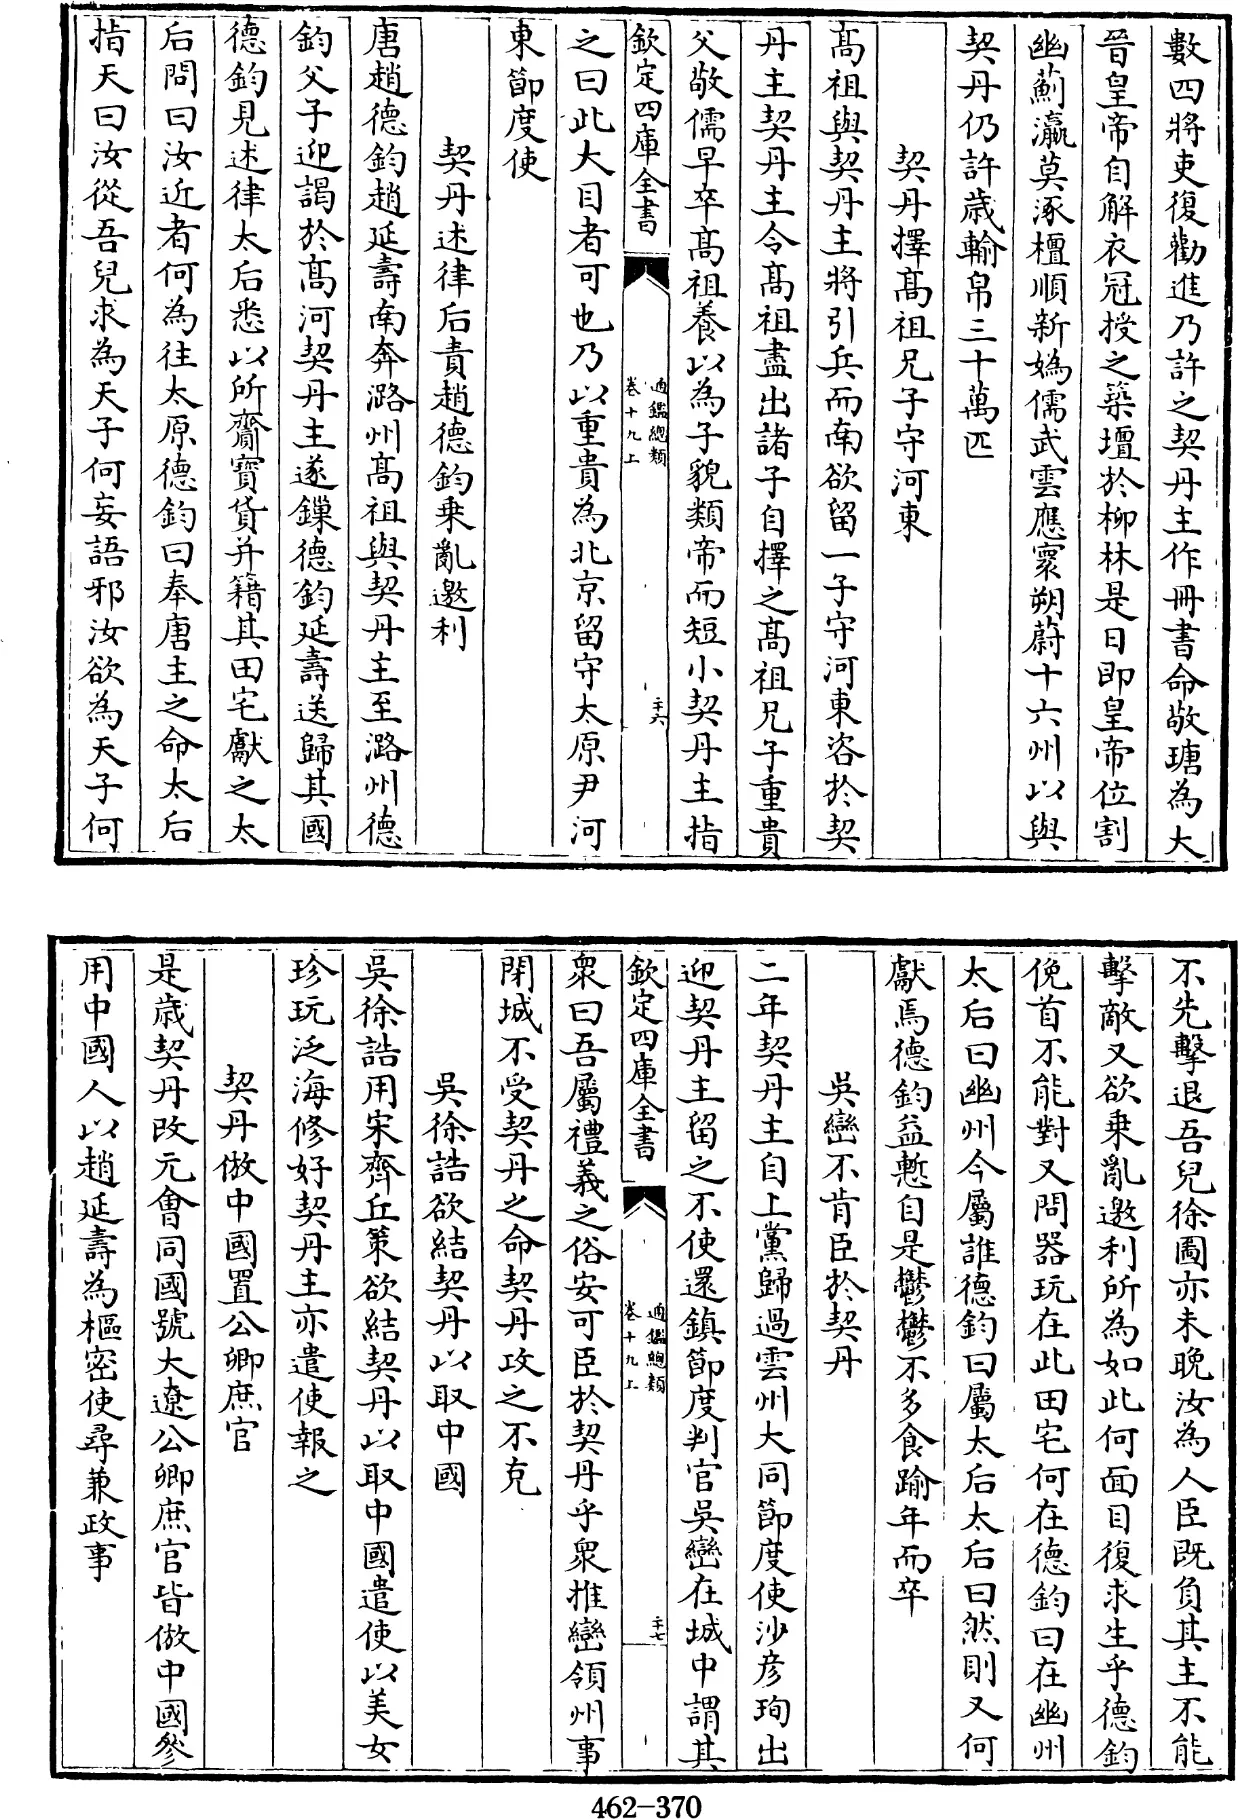 數四將吏復勸進乃許之契丹主作冊書命敬瑭為大
晉皇帝自解衣冠授之築壇於柳林是日即皇帝位割
幽薊瀛莫涿檀順新媯儒武雲應寰朔蔚十六州以與
契丹仍許歲輸帛三十萬匹
契丹擇高祖兄子守河東
高祖與契丹主將引兵而南欲留一子守河東咨於契
丹主契丹主令高祖盡出諸子自擇之高祖兄子重貴
父敬儒早卒高祖養以為子貌類帝而短小契丹主指
欽定四庫全書
通鑑總類
卷十九上
二十六
之曰此大目者可也乃以重貴為北京留守太原尹河
東節度使
契丹述律后責趙德鈞乗亂邀利
唐趙德鈞趙延壽南奔潞州高祖與契丹主至潞州德
鈞父子迎謁於高河契丹主遂鏁德鈞延壽送歸其國
德鈞見述律太后悉以所齎寶貨并籍其田宅獻之太
后問曰汝近者何為往太原德鈞曰奉唐主之命太后
指天曰汝從吾兒求為天子何妄語邪汝欲為天子何
不先擊退吾兒徐圖亦未晚汝為人臣既負其主不能
擊敵又欲乗亂邀利所為如此何面目復求生乎德鈞
俛首不能對又問器玩在此田宅何在德鈞曰在幽州
太后曰幽州今屬誰德鈞曰屬太后太后曰然則又何
獻焉德鈞益慙自是鬱鬱不多食踰年而卒
吳巒不肯臣於契丹
二年契丹主自上黨歸過雲州大同節度使沙彦珣出
迎契丹主留之不使還鎮節度判官吳巒在城中謂其
欽定四庫全書
通鑑總類
卷十九上
二十七
衆曰吾屬禮義之俗安可臣於契丹乎衆推巒領州事
閉城不受契丹之命契丹攻之不克
吳徐誥欲結契丹以取中國
吳徐誥用宋齊丘策欲結契丹以取中國遣使以美女
珍玩泛海修好契丹主亦遣使報之
契丹倣中國置公卿庶官
是歲契丹改元會同國號大遼公卿庶官皆倣中國參
用中國人以趙延壽為樞密使尋兼政事
462-370